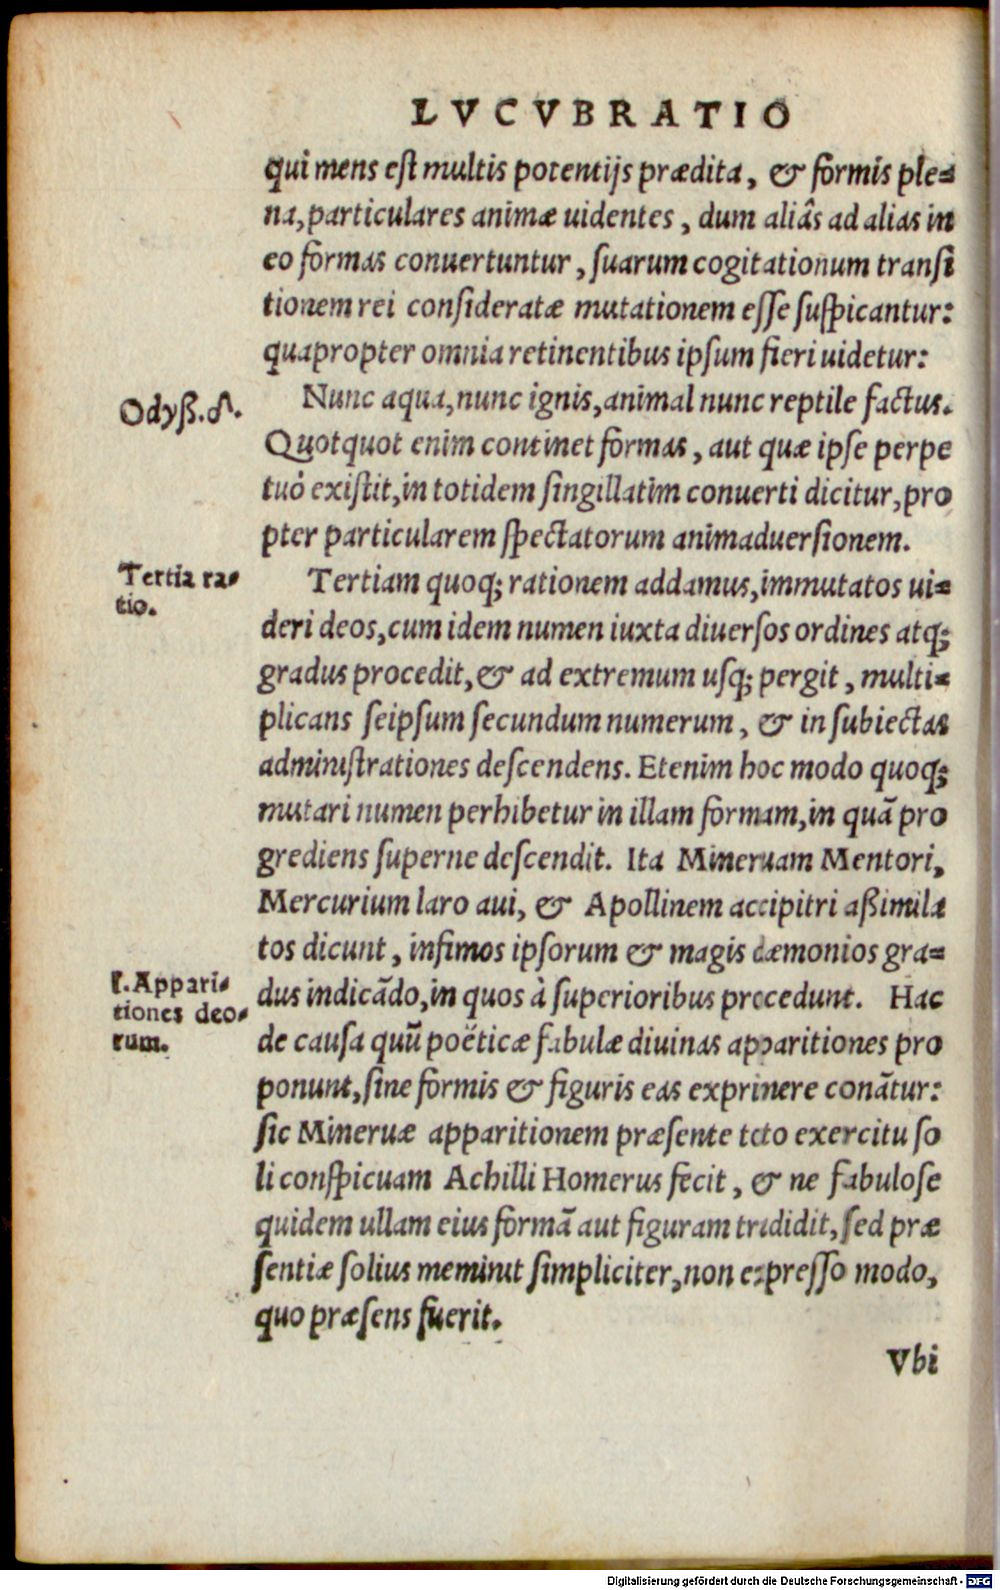 LVCVBRATIO
qui mens est multis potentijs prædita, & formis ple=
na, particulares animæ uidentes, dum aliâs ad alias in
eo formas conuertuntur, suarum cogitationum transi
tionem rei consideratæ mutationem esse suspicantur:
quapropter omnia retinentibus ipsum fieri uidetur:
Odyß. δ.
Nunc aqua, nunc ignis, animal nunc reptile factus.
Quotquot enim continet formas, aut quæ ipse perpe
tuò existit, in totidem singillatim conuerti dicitur, pro
pter particularem spectatorum animaduersionem.
Tertia ra=
tio.
Tertiam quoq; rationem addamus, immutatos ui=
deri deos, cum idem numen iuxta diuersos ordines atq;
gradus procedit, & ad extremum usq; pergit, multi=
plicans seipsum secundum numerum, & in subiectas
administrationes descendens. Etenim hoc modo quoq;
mutari numen perhibetur in illam formam, in quā pro
grediens superne descendit. Ita Mineruam Mentori,
Mercurium laro aui, & Apollinem accipitri aßimila
tos dicunt, infimos ipsorum & magis dæmonios gra=
ſ. Appari=
tiones deo=
rum.
dus indicādo, in quos à superioribus procedunt. Hac
de causa quū poëticæ fabulæ diuinas apparitiones pro
ponunt, sine formis & figuris eas exprimere conātur:
sic Mineruæ apparitionem præsente toto exercitu so
li conspicuam Achilli Homerus fecit, & ne fabulose
quidem ullam eius formā aut figuram tradidit, sed præ
sentiæ solius meminit simpliciter, non expresso modo,
quo præsens fuerit.
Vbi
Digitalisierung gefördert durch die Deutsche Forschungsgemeinschaft - DFG